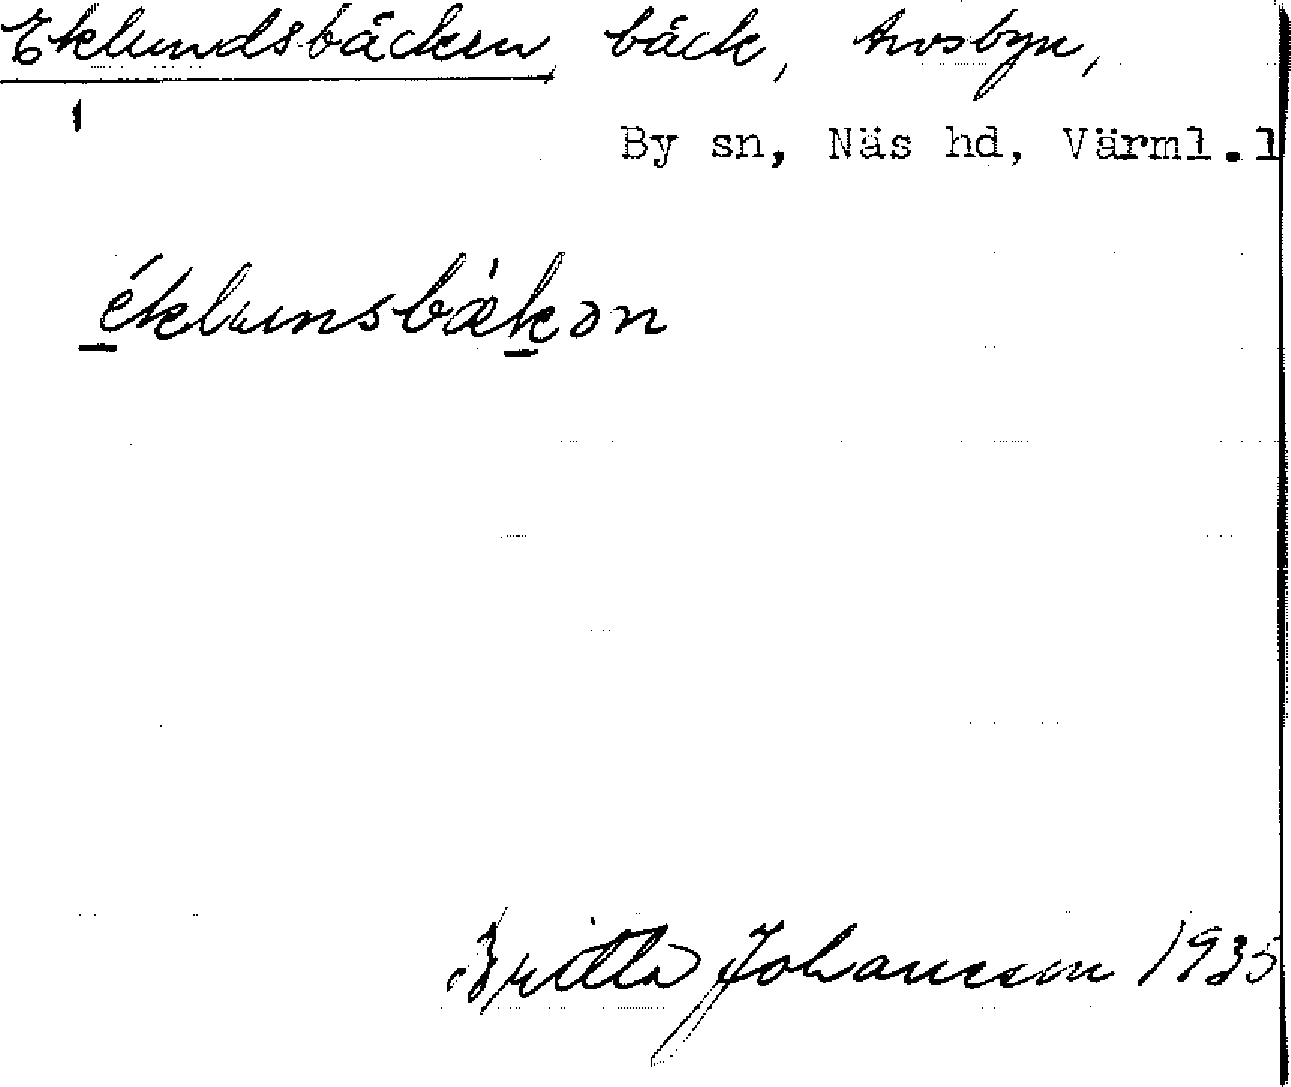 Eklundsbäcken bäck, Avsbyn,
By sn, Näs hd, Värml.l
éklunsbækən
Britta Johansson 1935